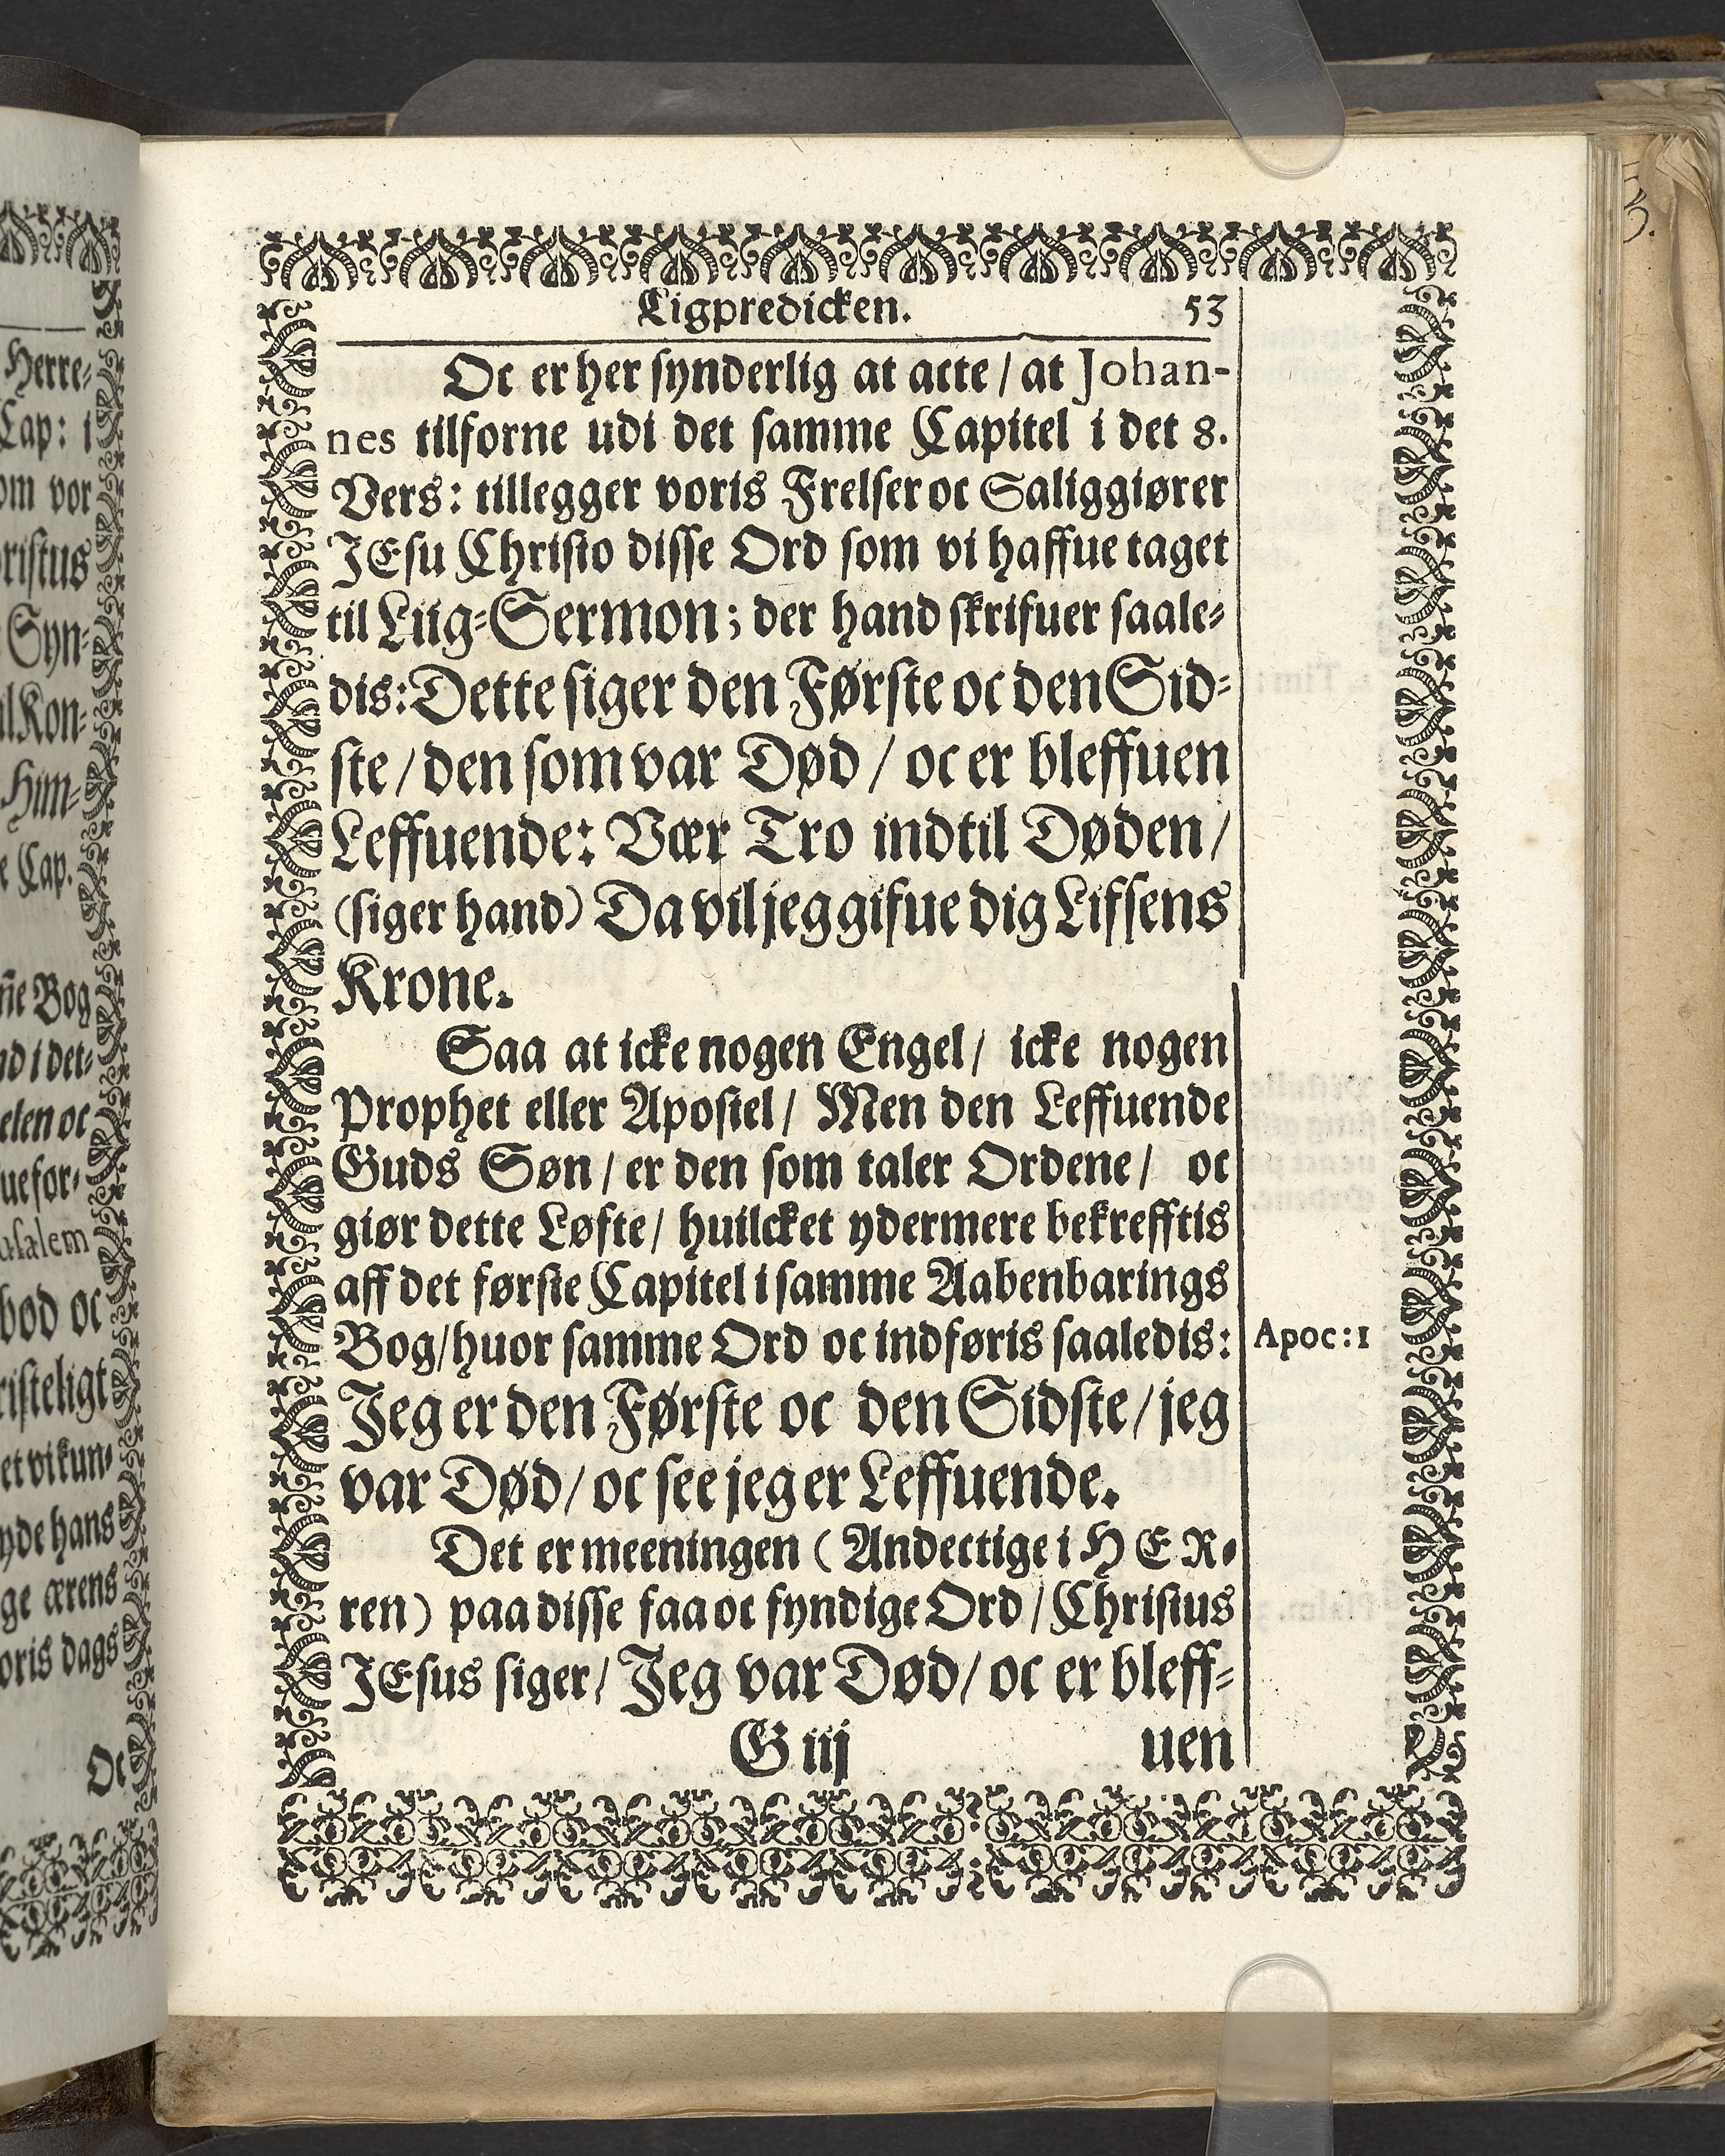 Herre-
Cap: i
om vor
ristus
Syn-
al Kon-
Him-
e Cap.
Bog
nd i det-
elen oc
ue for-
usalem
bod oc
risteligt
et vi kun-
yde hans
ge ærens
oris dags
Oc
Ligpredicken. 53
Oc er her synderlig at acte / at Johan-
nes tilforne udi det samme Capitel i det 8.
Vers: tillegger voris Frelser oc Saliggiører
JEsu Christo disse Ord som vi haffue taget
til Liig-Sermon; der hand skrifuer saale-
dis: Dette siger den Første oc den Sid-
ste / den som var Død / oc er bleffuen
Leffuende: Vær Tro indtil Døden /
(siger hand) Da vil jeg gifue dig Lifsens
Krone.
Saa at icke nogen Engel / icke nogen
Prophet eller Apostel / Men den Leffuende
Guds Søn / er den som taler Ordene / oc
giør dette Løfte / huilcket ydermere bekrefftis
aff det første Capitel i samme Aabenbarings
Bog / huor samme Ord oc indføris saaledis:
Apoc: 1
Jeg er den Første oc den Sidste / jeg
var Død / oc see jeg er Leffuende.
Det er meeningen ( Andectige i HER-
ren ) paa disse faa oc fyndige Ord / Christus
JEsus siger / Jeg var Død / oc er bleff-
G iij uen